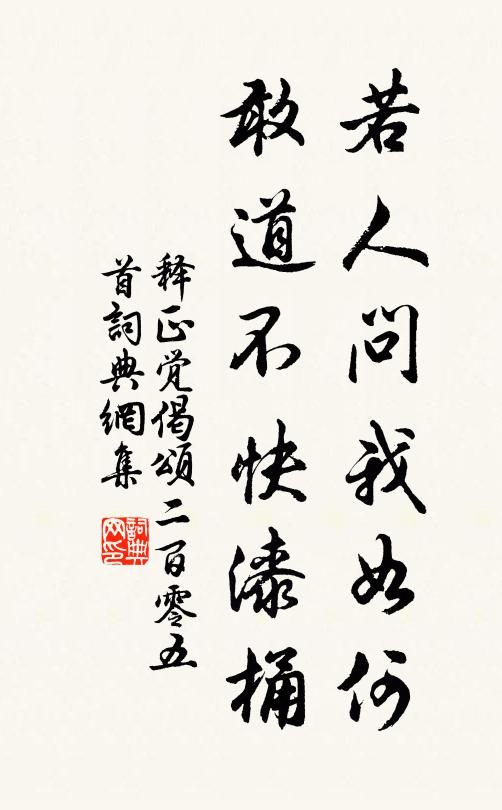 若人问我如何
敢道不快漆桶
释正觉偈頌二百零五
首詞典網集
詞典网印